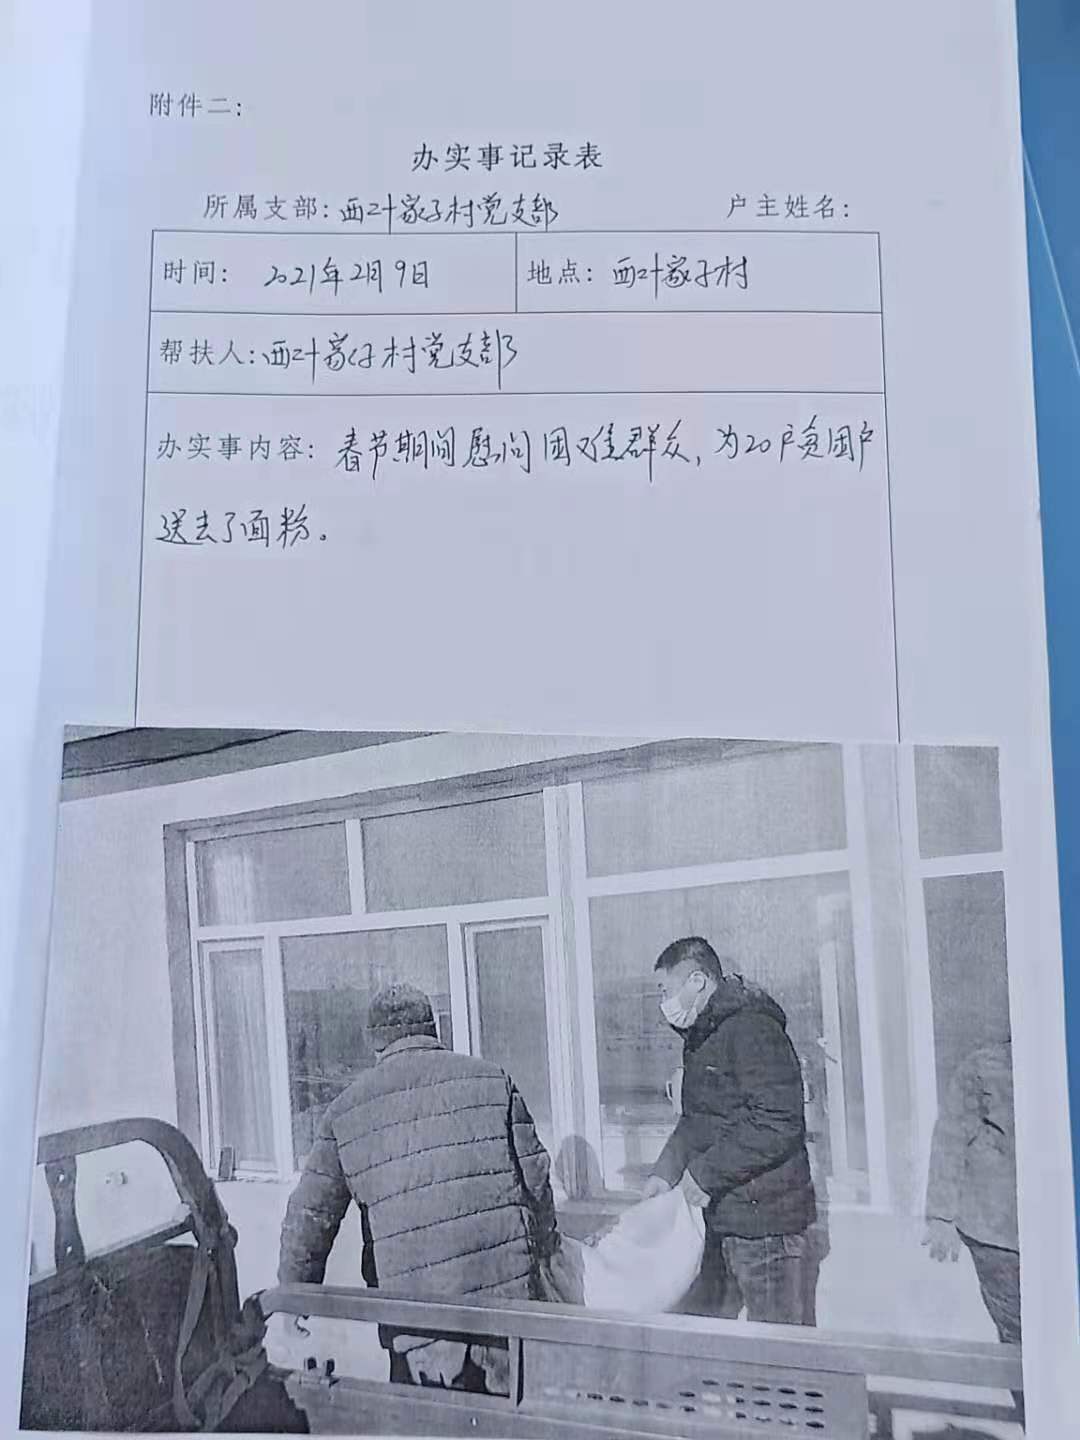 附件二:
办实事记录表
所属支部: 西叶家子村党支部 户主姓名:
时间: 2021年2月9日 地点: 西叶家子村
帮扶人: 西叶家子村党支部
办实事内容: 春节期间慰问困难群众, 为20户贫困户
送去了面粉。